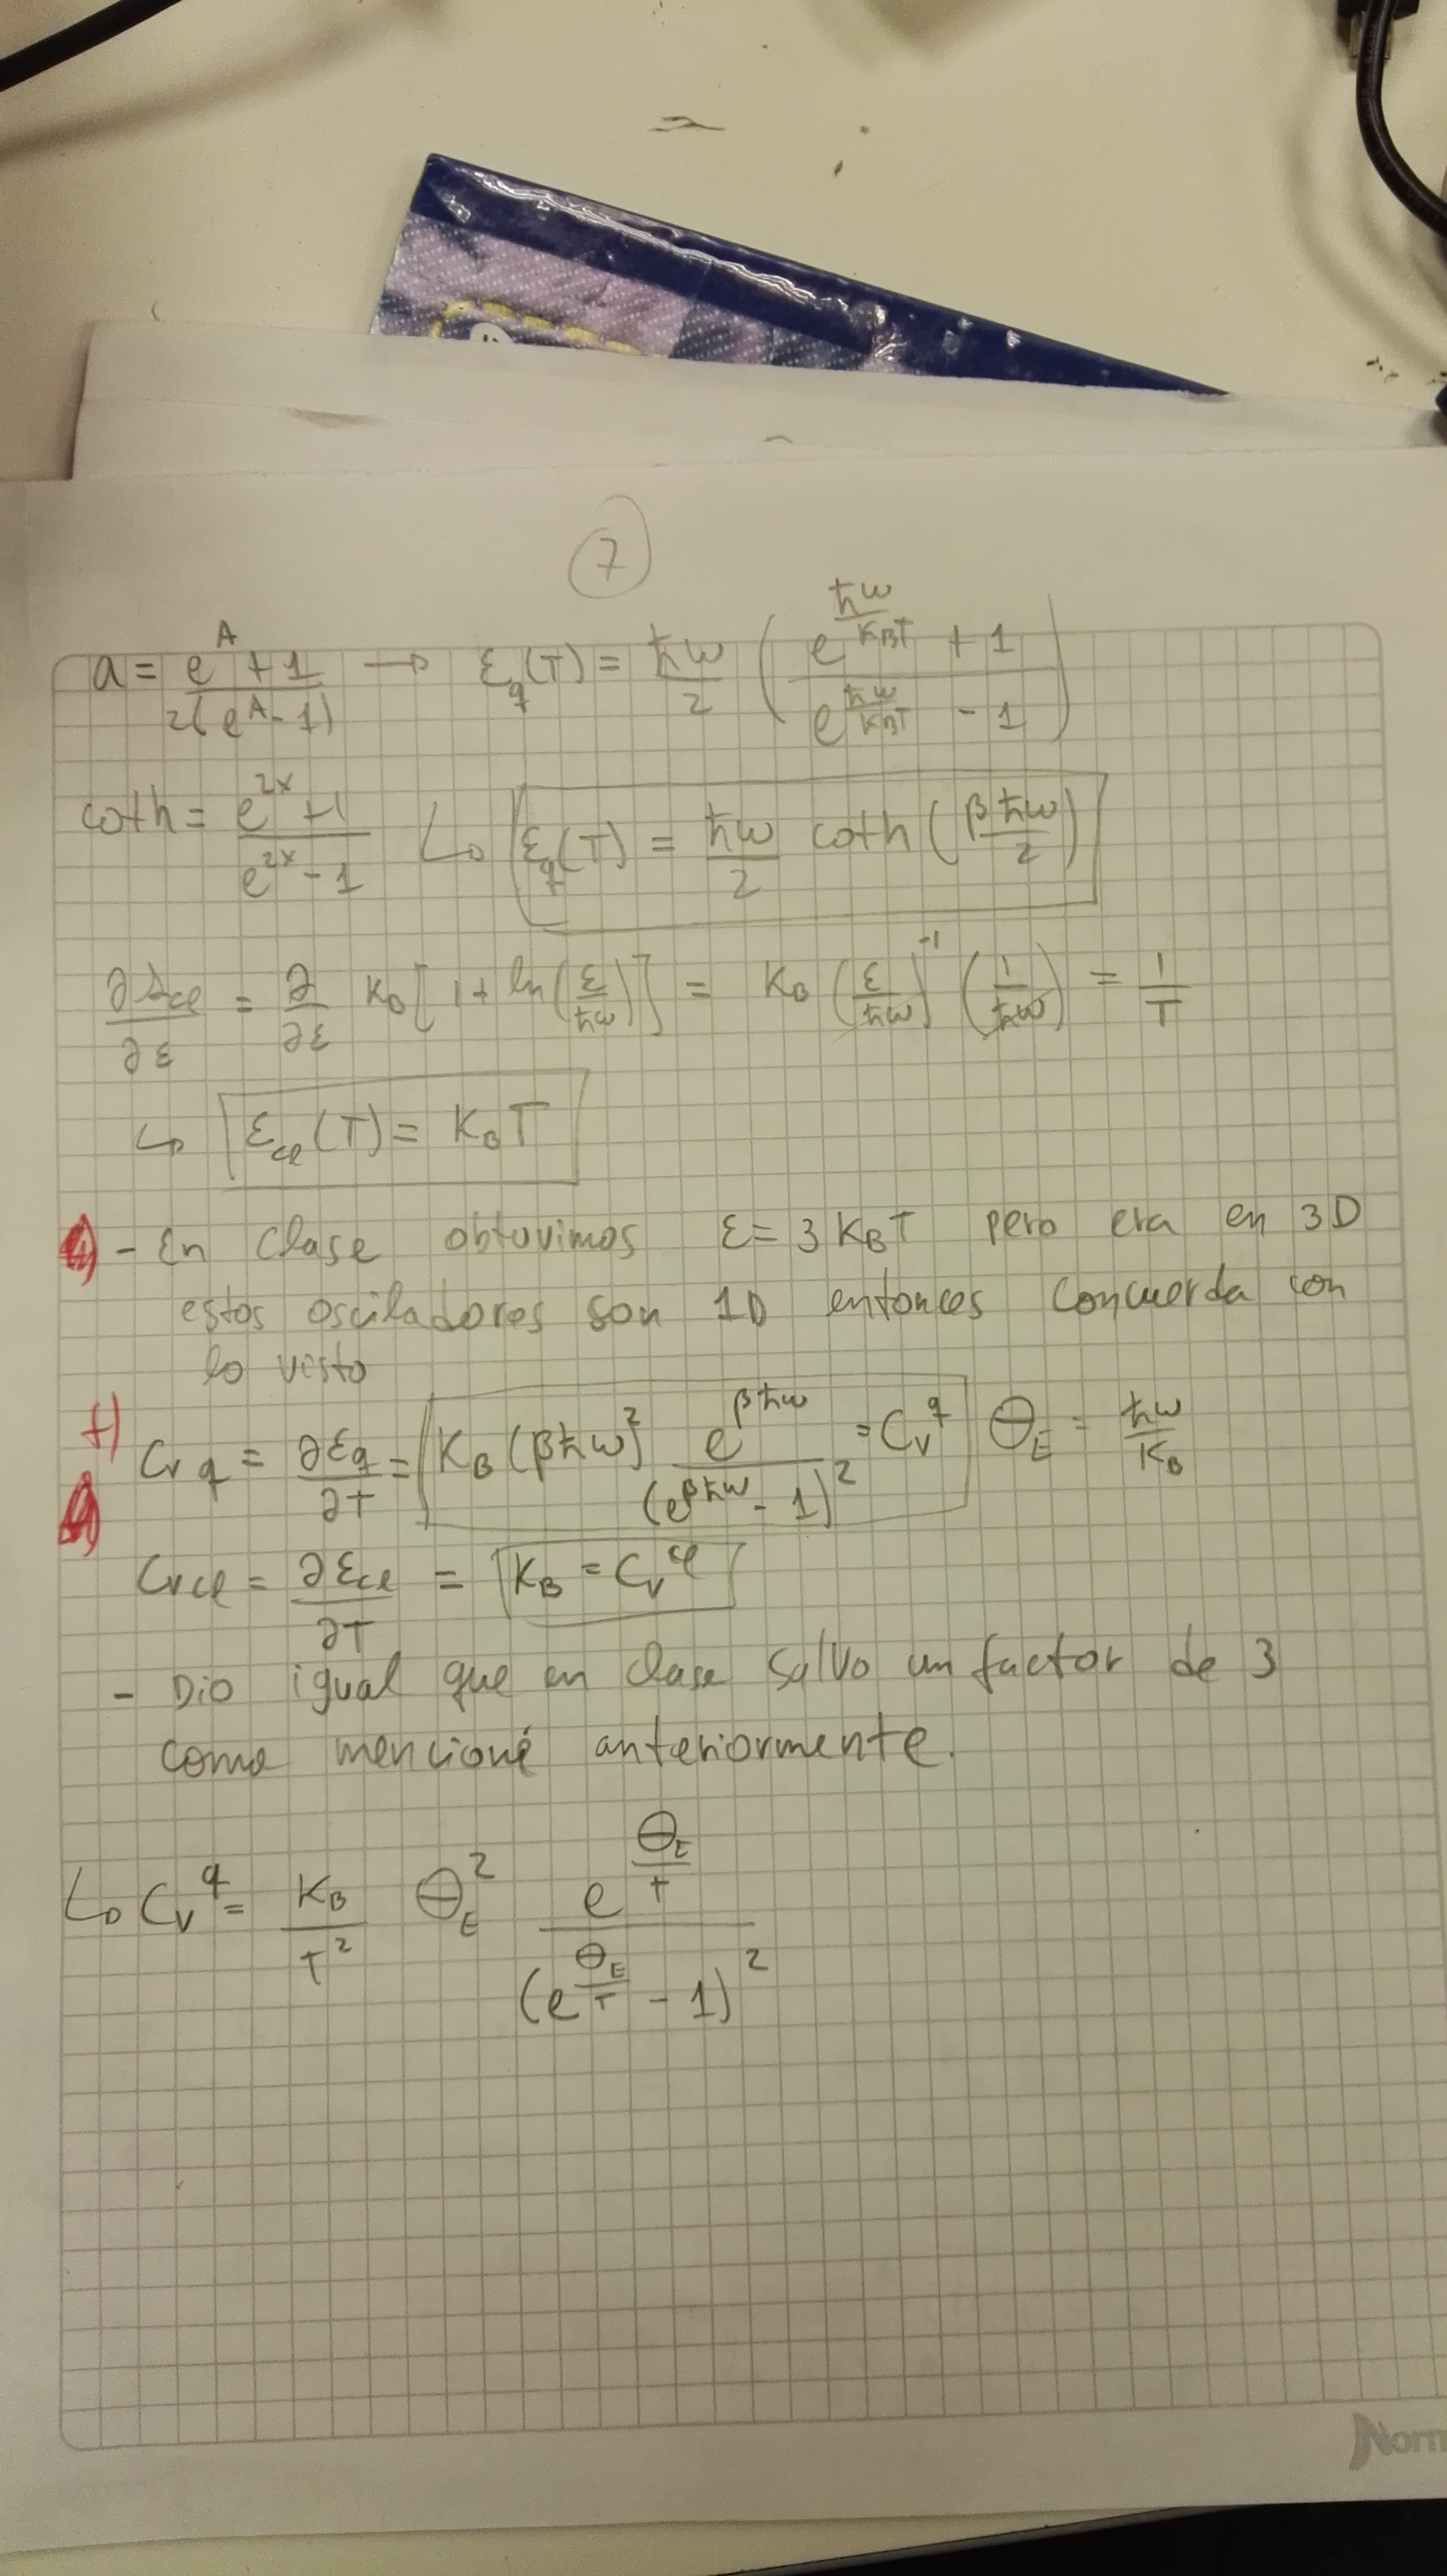 7
a = (e^A + 1)/(2(e^A - 1)) → ε_q(T) = ħω/2 ( (e^(ħω/K_BT) + 1)/(e^(ħω/K_BT) - 1) )
coth = (e^2x + 1)/(e^2x - 1) ↳ ε_q(T) = ħω/2 coth(βħω/2)
∂s_cl/∂ε = ∂/∂ε K_B[1 + ln(ε/ħω)] = K_B (ε/ħω)^-1 (1/ħω) = 1/T
↳ ε_cl(T) = K_BT
- En clase obtuvimos ε = 3 K_BT pero era en 3D
estos osciladores son 1D entonces concuerda con
lo visto
f) Cv_q = ∂ε_q/∂T = K_B(βħω)^2 e^(βħω)/(e^(βħω) - 1)^2 = C_v^q Θ_E = ħω/K_B
Cv_cl = ∂ε_cl/∂T = K_B = C_v^cl
- Dio igual que en clase salvo un factor de 3
como mencioné anteriormente.
↳ C_v^q = K_B/T^2 Θ_E^2 e^(Θ_E/T)/(e^(Θ_E/T) - 1)^2
Norm